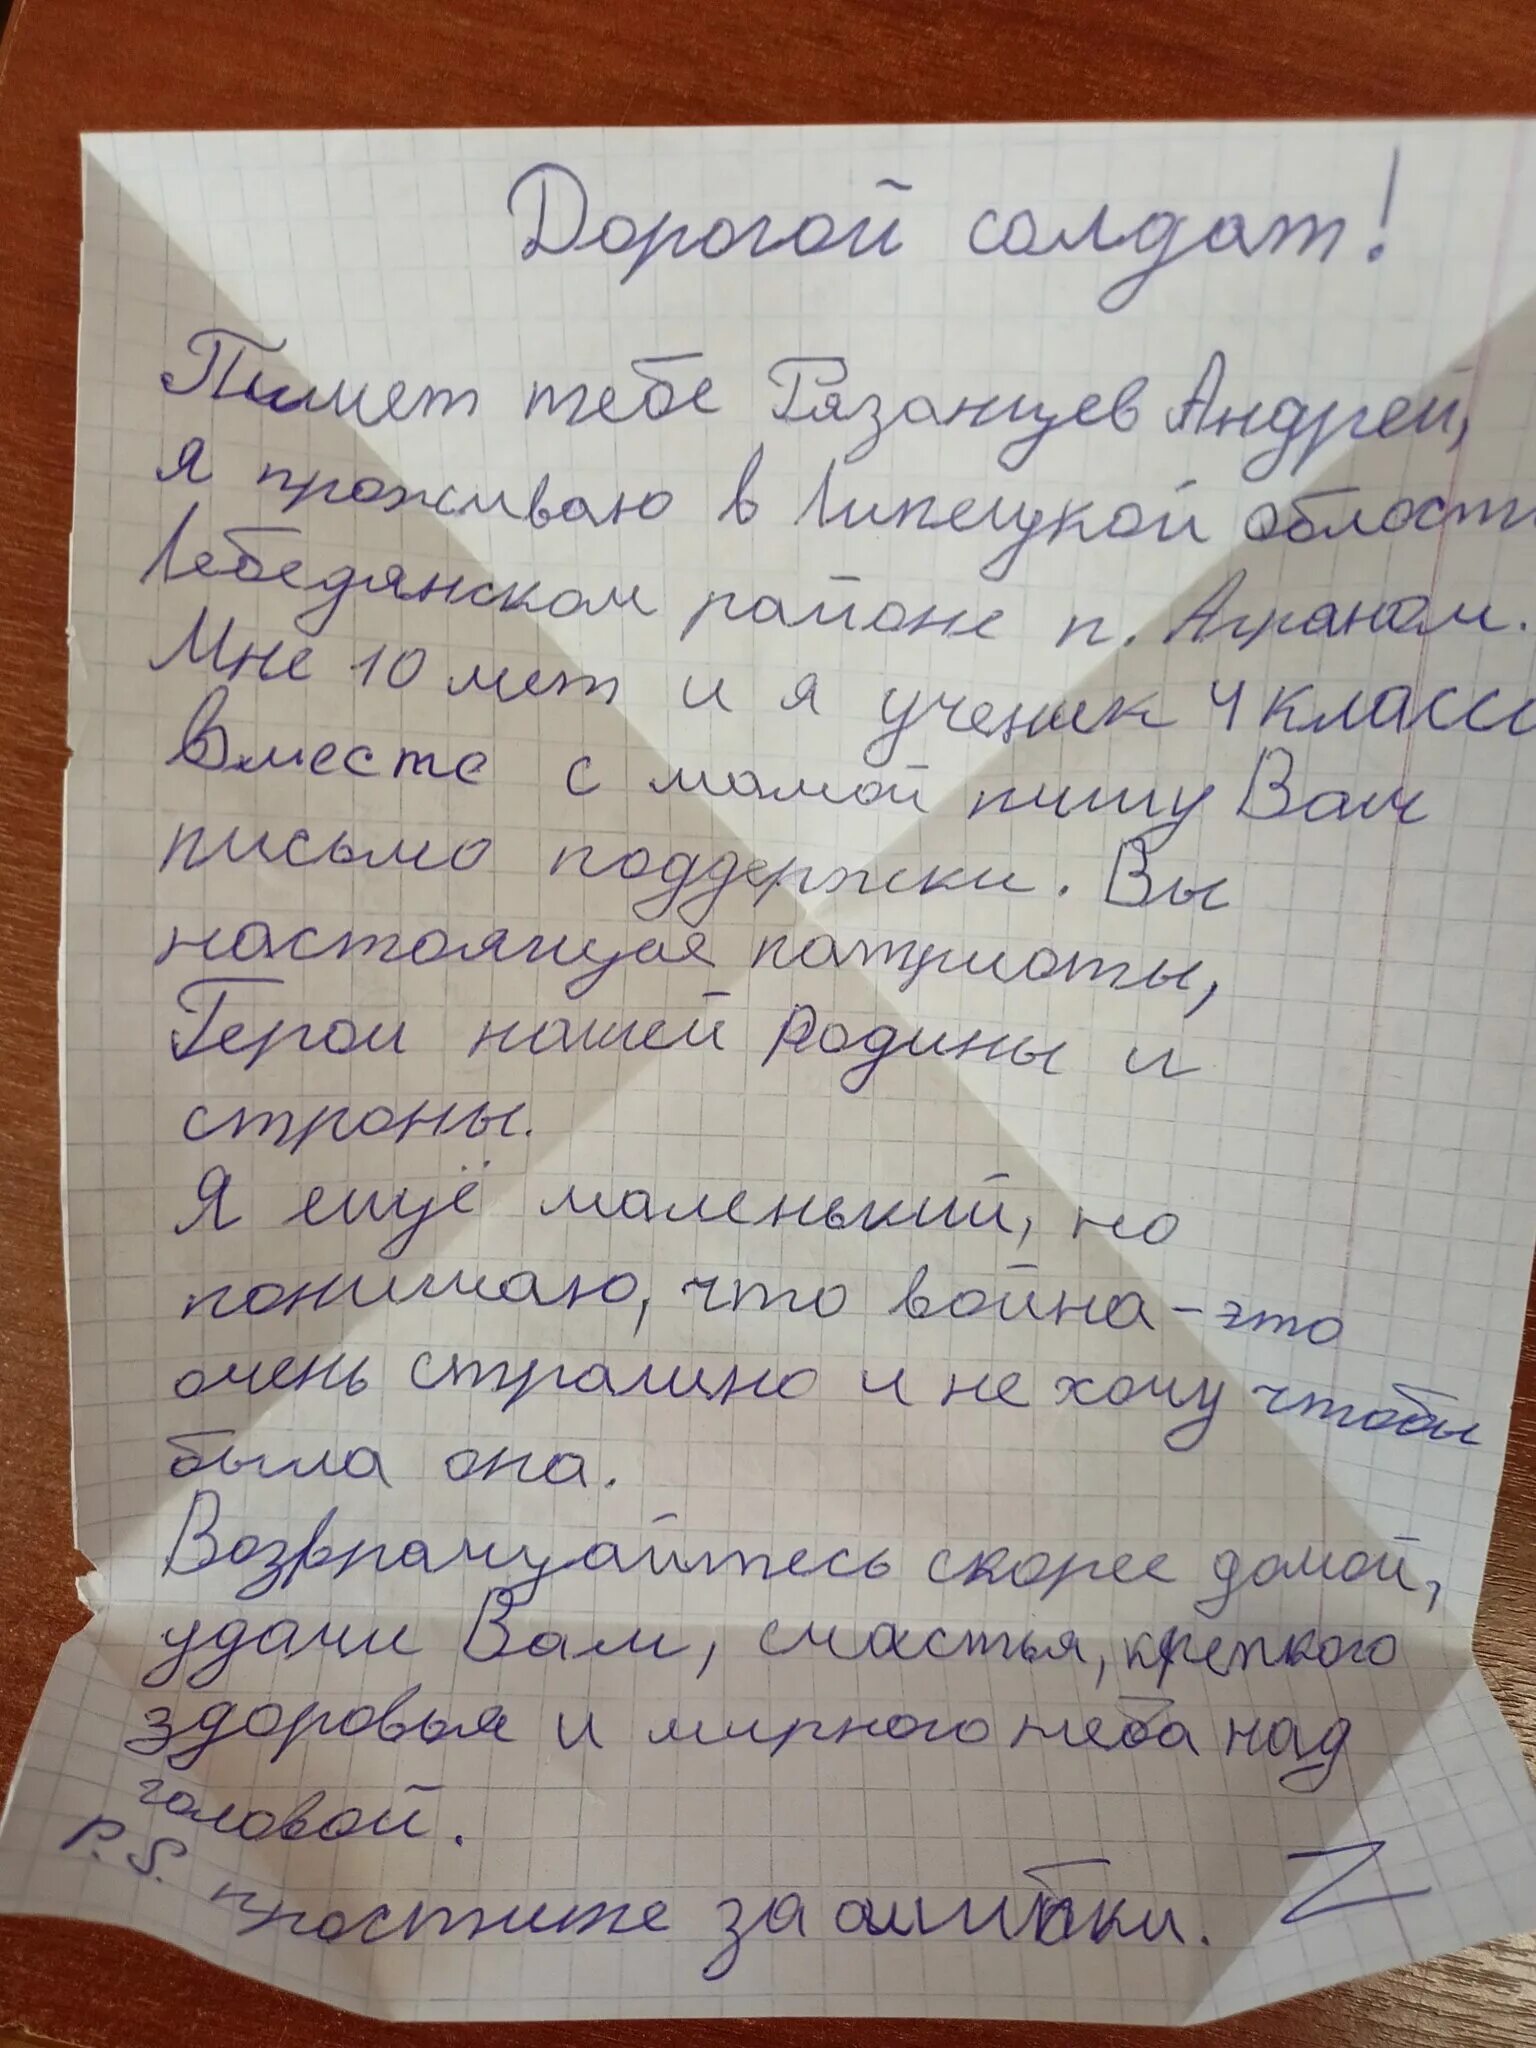 Дорогой солдат!
Пишет тебе Рязанцев Андрей,
я проживаю в Липецкой области
Лебедянском районе п. Агроном.
Мне 10 лет и я ученик 4 класса
Вместе с мамой пишу Вам
письмо поддержки. Вы
настоящие патриоты,
Герои нашей Родины и
страны.
Я ещё маленький, но
понимаю, что война - это
очень страшно и не хочу чтобы
была она.
Возвращайтесь скорее домой,
удачи Вам, счастья, крепкого
здоровья и мирного неба над
головой.
P.S. простите за ошибки. Z